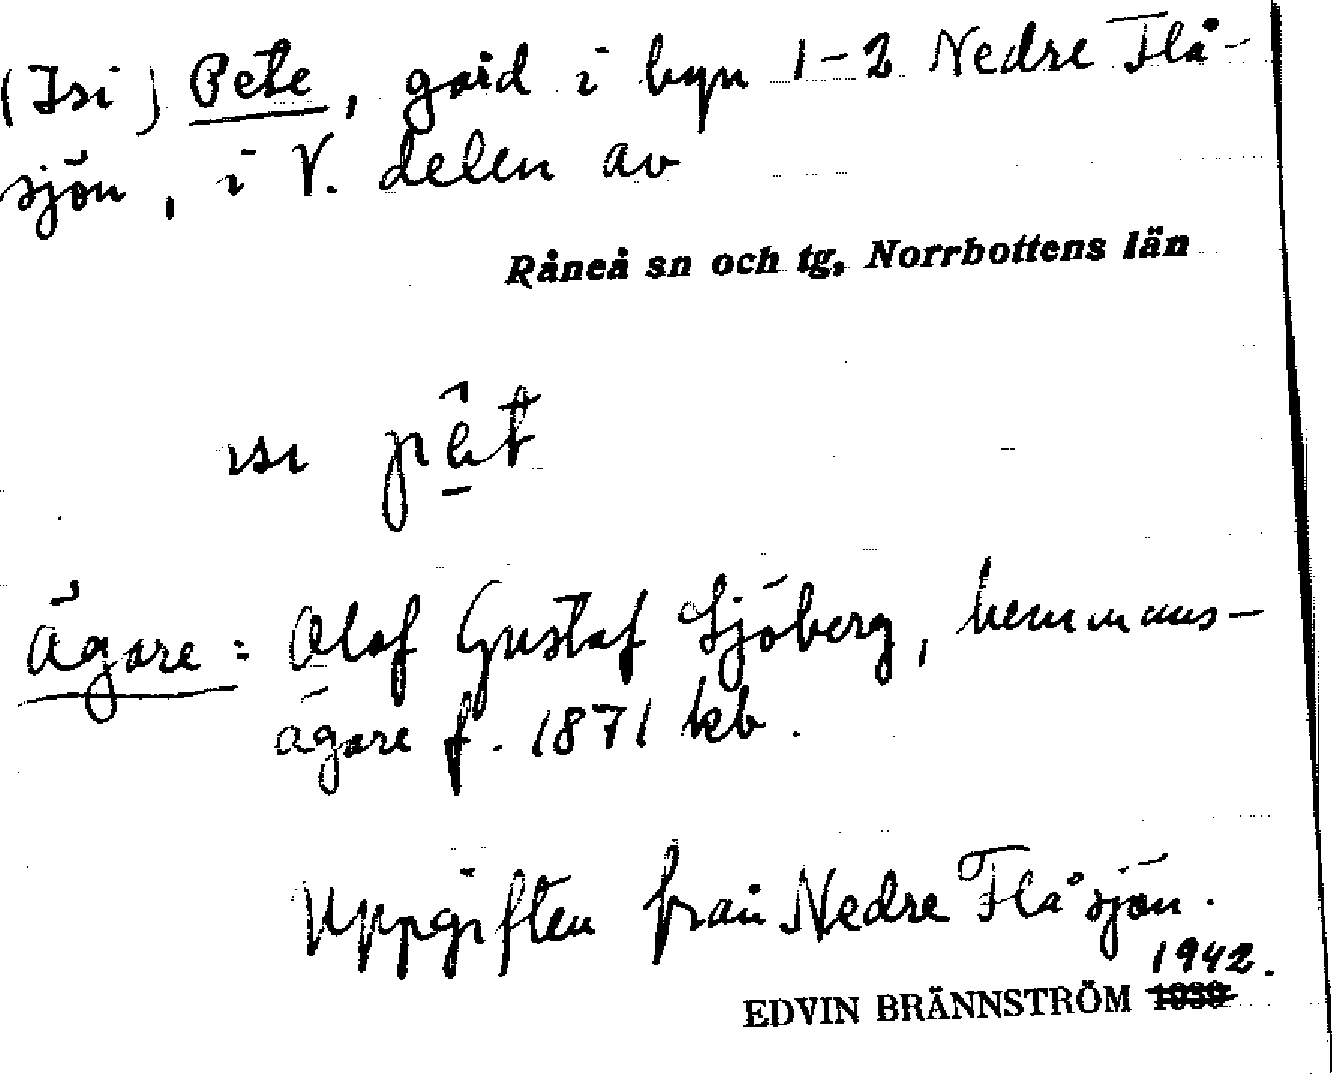 (Isi) Pete, gård i byn 1-2 Nedre Flå-
sjön, i V. delen av
Råneå sn och tg, Norrbottens län
ɪsɪ pêt
Ägare: Olof Gustaf Sjöberg, hemmans-
ägare f. 1871 kb.
Uppgiften från Nedre Flåsjön.
1942.
EDVIN BRÄNNSTRÖM 1939